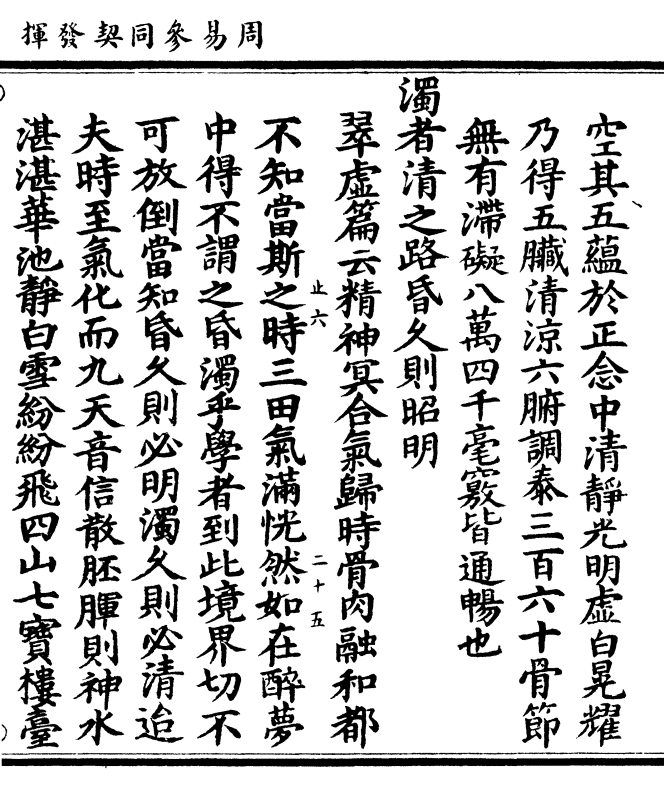 周易參同契發揮
空其五蘊於正念中清靜光明虛白晃耀
乃得五臟清涼六腑調泰三百六十骨節
無有滯礙八萬四千毫竅皆通暢也
濁者清之路昏久則昭明
翠虛篇云精神冥合氣歸時骨肉融和都
止六
二十五
不知當斯之時三田氣滿恍然如在醉夢
中得不謂之昏濁乎學者到此境界切不
可放倒當知昏久則必明濁久則必清迨
夫時至氣化而九天音信散胚腪則神水
湛湛華池靜白雪紛紛飛四山七寶樓臺